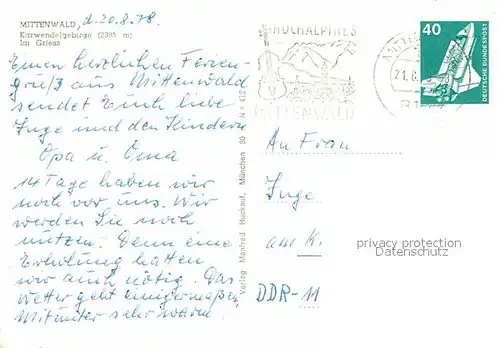 MITTENWALD, d. 20.8.78.
Karwendelgebirge (2385 m)
Im Griess
Einen herzlichen Ferien-
gruß aus Mittenwald
sendet Euch liebe
Inge und den Kindern
Opa u. Oma
14 Tage haben wir
noch vor uns. Wir
werden Sie noch
nutzen. Denn eine
Erholung hatten
wir auch nötig. Das
Wetter geht einigermaßen
Mitunter sehr warm.
Verlag Manfred Huckauf, München 80 N 412
HOCHALPINES
MITTENWALD
21.8.
40
DEUTSCHE BUNDESPOST
An Frau
Inge
am K.
DDR-11
privacy protection
Datenschutz